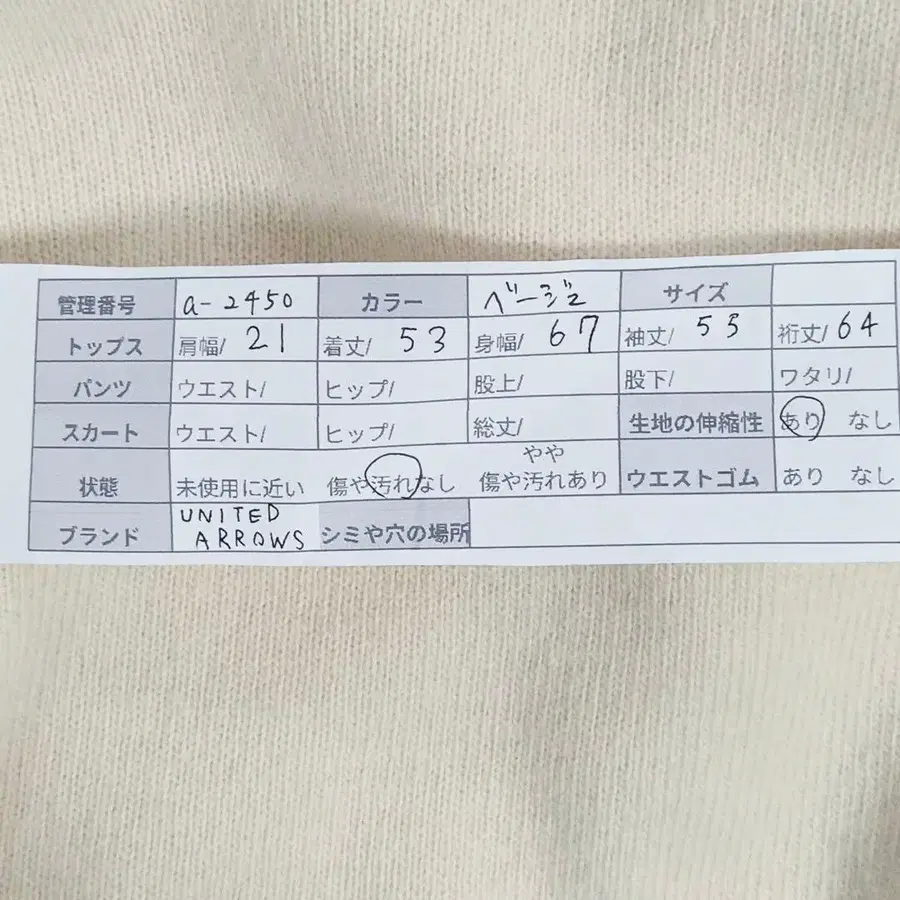 管理番号 a-2450 カラー ベージュ サイズ
トップス 肩幅/ 21 着丈/ 53 身幅/ 67 袖丈/ 53 裄丈/ 64
パンツ ウエスト/ ヒップ/ 股上/ 股下/ ワタリ/
スカート ウエスト/ ヒップ/ 総丈/ 生地の伸縮性 あり なし
状態 未使用に近い 傷や汚れなし やや傷や汚れあり ウエストゴム あり なし
ブランド UNITED ARROWS シミや穴の場所